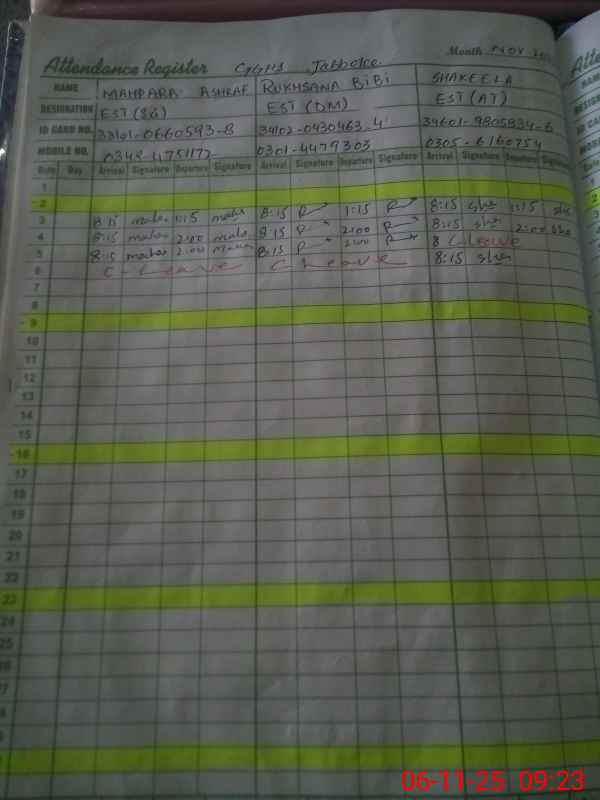 Attendance Register GGHS Jabboke Month Nov
NAME MAHPARA ASHRAF RUKHSANA BIBI SHAKEELA
DESIGNATION EST (SG) EST (DM) EST (AT)
ID CARD NO. 33101-0660593-8 34102-0430463-4 34601-9805834-6
MOBILE NO. 0348-4751177 0301-4479303 0305-6160754
Date Day Arrival Signature Departure Signature Arrival Signature Departure Signature Arrival Signature Departure Signature
1
2
3 8:15 1:15 8:15 1:15 8:15 1:15
4 8:15 2:00 8:15 2:00 8:15 2:00
5 8:15 2:00 8:15 2:00 C Leave
6 C-Leave C Leave 8:15
7
8
9
10
11
12
13
14
15
16
17
18
19
20
21
22
23
24
25
06-11-25 09:23